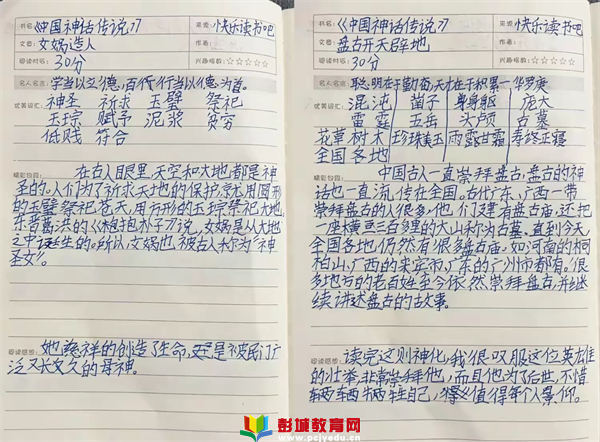 书名:《中国神话传说》 来源:快乐读书吧
文章:女娲造人 作者:
阅读时间:30分 兴趣指数:☆☆☆☆☆
名人名言:学当以立德,百代行当以德为首。
优美词汇:神圣 祈求 玉璧 祭祀
玉琮 赋予 泥浆 贫穷
低贱 符合
精彩句段:在古人眼里,天空和大地都是神
圣的。人们为了祈求天地的保护,常用圆形
的玉璧祭祀苍天,用方形的玉琮祭祀大地。
东晋葛洪的《抱朴子》说,女娲是从大地
之中诞生的。所以,女娲也被古人称为“神
圣女”。
阅读感想:她慈祥的创造了生命,更是被民门广
泛又长久久的尋神。
书名:《中国神话传说》 来源:快乐读书吧
文章:盘古开天辟地 作者:
阅读时间:30分 兴趣指数:☆☆☆☆☆
名人名言:聪明在于勤奋,天才在于积累—华罗庚
优美词汇:混沌 苗子 身躯 庞大
雷霆 五岳 头颅 古墓
花草树木 珍珠美玉 雨露甘霜 寿终正寝
全国各地
精彩句段:中国古人一直崇拜盘古,盘古的神
话也一直流传在全国。古代广东、广西一带
崇拜盘古的人很多,他们建有盘古庙,还把
一座横亘三百多里的大山称为古墓。直到今天,
全国各地仍然有很多盘古庙。如河南的桐
柏山、广西的来宾市、广东的广州市都有。很
多地方的老百姓至今依然崇拜盘古,并继
续讲述盘古的故事。
阅读感想:读完这则神化,我很叹服这位英雄
的壮举,非常崇拜他,而且他为了后世,不惜
牺牲自己,值得每个人景仰。
彭城教育网
www.pcjyedu.cn